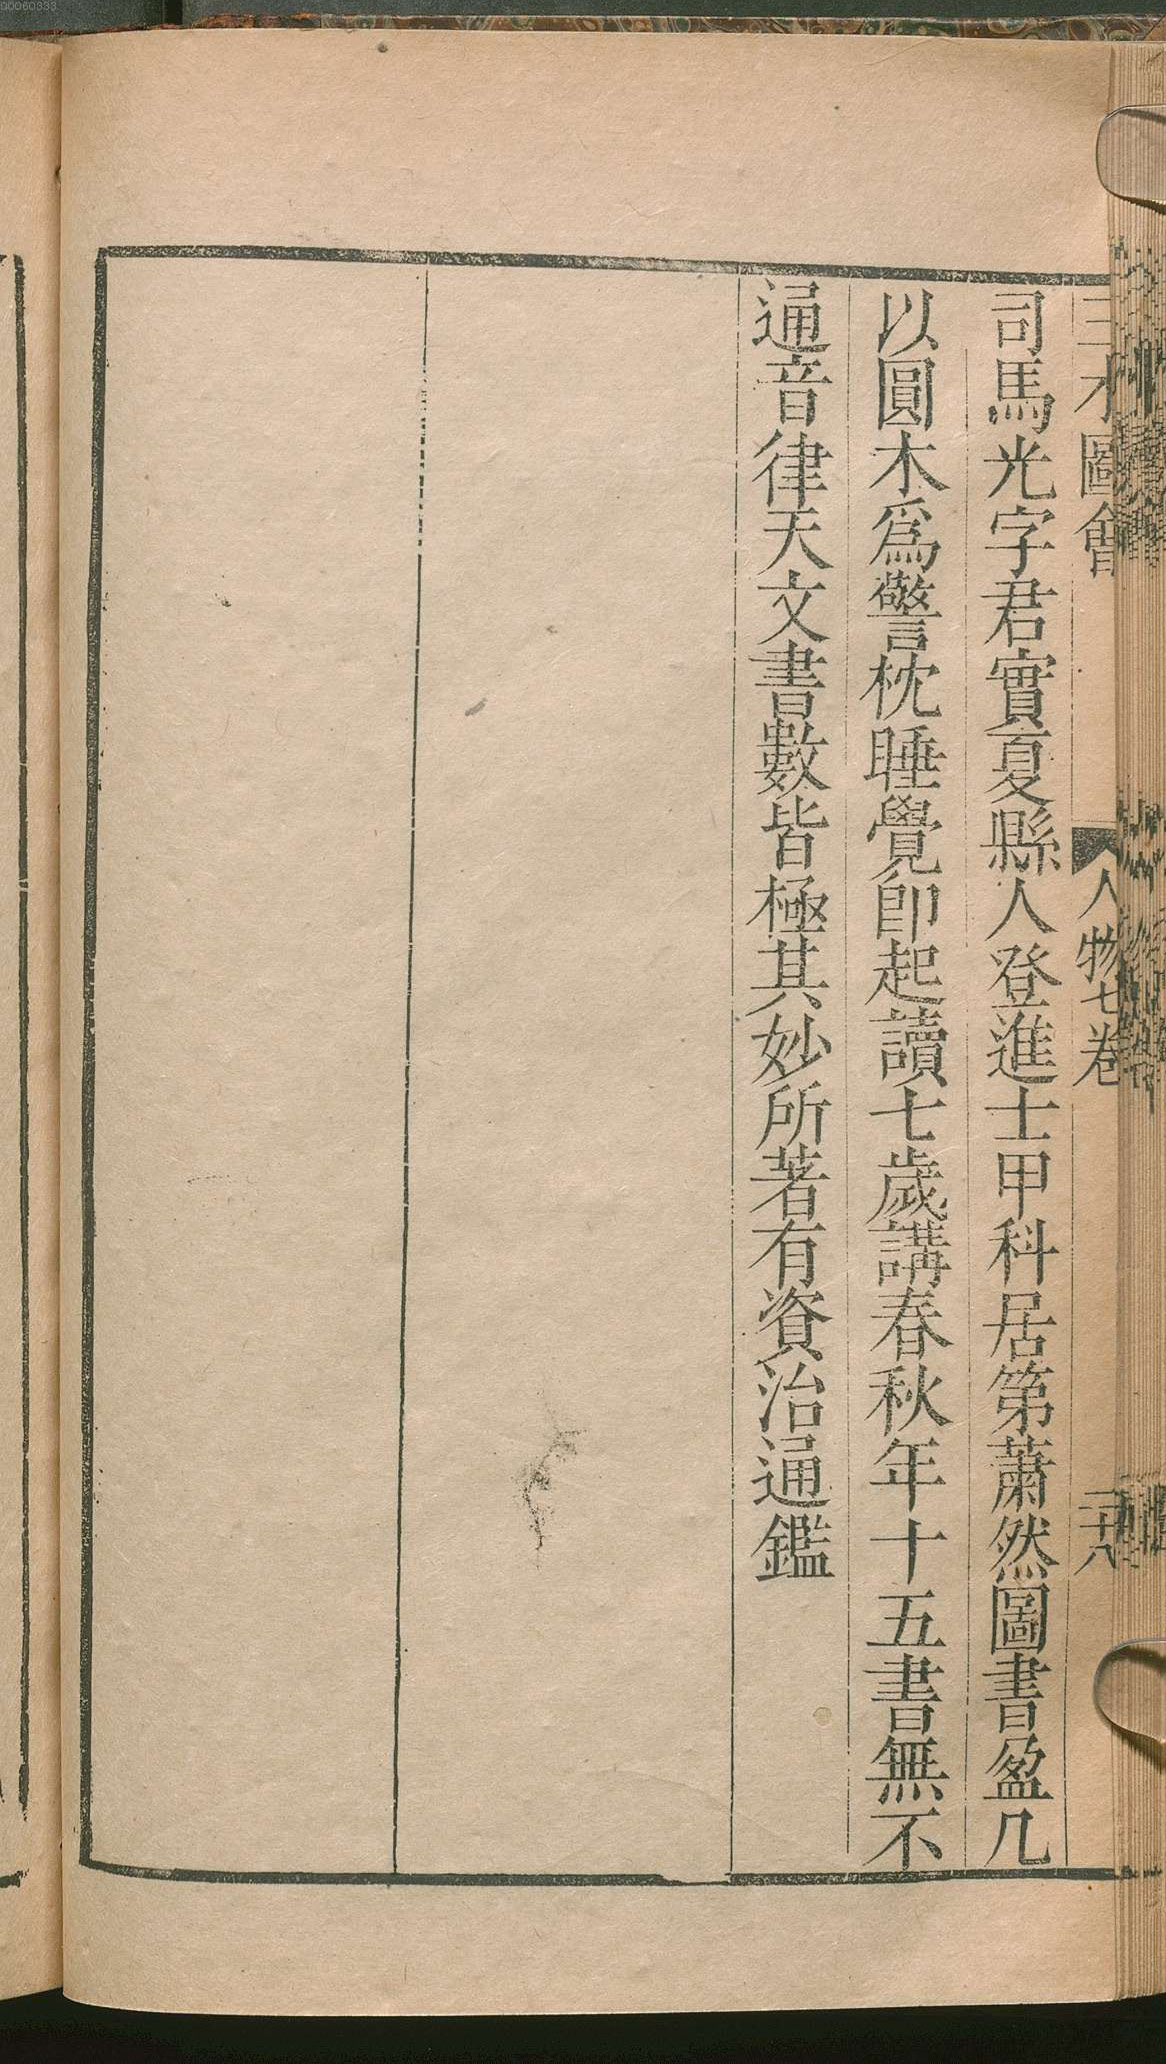 三才圖會 人物七卷 二十八
司馬光字君實夏縣人登進士甲科居第蕭然圖書盈几
以圓木爲警枕睡覺卽起讀七歲講春秋年十五書無不
通音律天文書數皆極其妙所著有資治通鑑
00060333